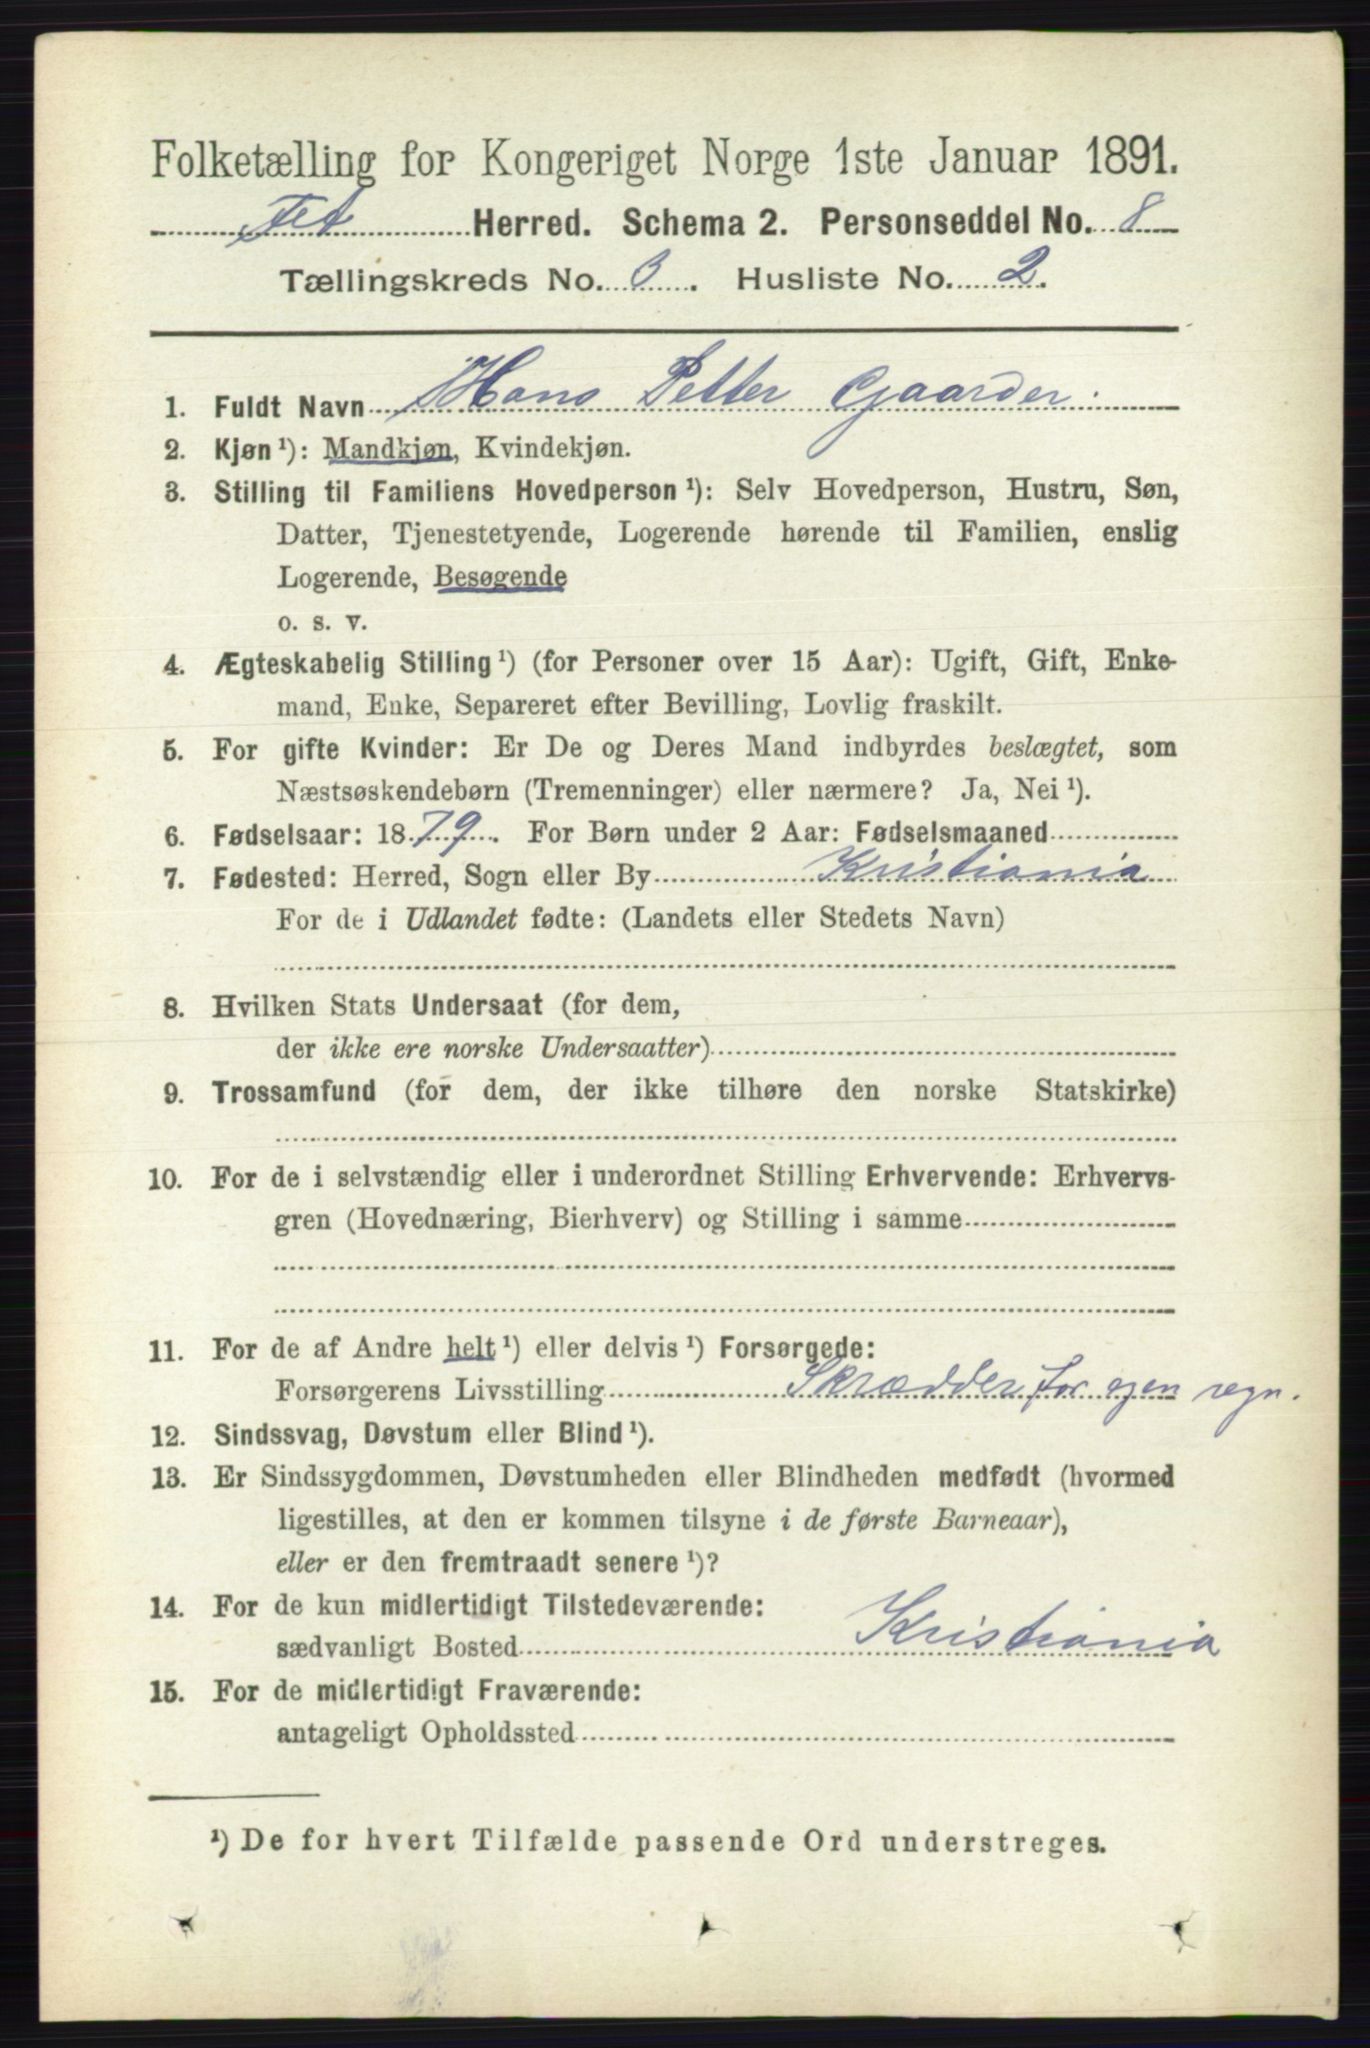 Folketælling for Kongeriget Norge 1ste Januar 1891.
Fet Herred. Schema 2. Personseddel No. 8
Tællingskreds No. 3. Husliste No. 2.
1. Fuldt Navn Hans Petter Gaarder.
2. Kjøn ¹): Mandkjøn, Kvindekjøn.
3. Stilling til Familiens Hovedperson ¹): Selv Hovedperson, Hustru, Søn,
Datter, Tjenestetyende, Logerende hørende til Familien, enslig
Logerende, Besøgende
o. s. v.
4. Ægteskabelig Stilling ¹) (for Personer over 15 Aar): Ugift, Gift, Enke-
mand, Enke, Separeret efter Bevilling, Lovlig fraskilt.
5. For gifte Kvinder: Er De og Deres Mand indbyrdes beslægtet, som
Næstsøskendebørn (Tremenninger) eller nærmere? Ja, Nei ¹).
6. Fødselsaar: 1879. For Børn under 2 Aar: Fødselsmaaned
7. Fødested: Herred, Sogn eller By Kristiania
For de i Udlandet fødte: (Landets eller Stedets Navn)
8. Hvilken Stats Undersaat (for dem,
der ikke ere norske Undersaatter)
9. Trossamfund (for dem, der ikke tilhøre den norske Statskirke)
10. For de i selvstændig eller i underordnet Stilling Erhvervende: Erhvervs-
gren (Hovednæring, Bierhverv) og Stilling i samme
11. For de af Andre helt ¹) eller delvis ¹) Forsørgede:
Forsørgerens Livsstilling Skrædder for egen regn.
12. Sindssvag, Døvstum eller Blind ¹).
13. Er Sindssygdommen, Døvstumheden eller Blindheden medfødt (hvormed
ligestilles, at den er kommen tilsyne i de første Barneaar),
eller er den fremtraadt senere ¹)?
14. For de kun midlertidigt Tilstedeværende:
sædvanligt Bosted Kristiania
15. For de midlertidigt Fraværende:
antageligt Opholdssted
¹) De for hvert Tilfælde passende Ord understreges.